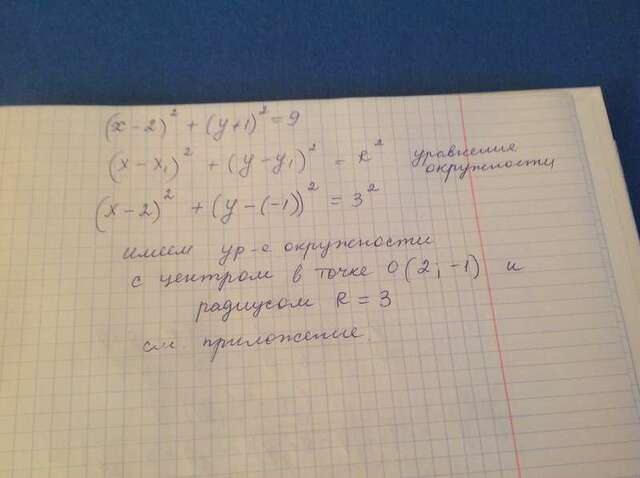 (x - 2)² + (y + 1)² = 9
(x - x₁)² + (y - y₁)² = R² уравнение окружности
(x - 2)² + (y - (-1))² = 3²
имеем ур-е окружности
с центром в точке O(2; -1) и
радиусом R = 3
см. приложение.